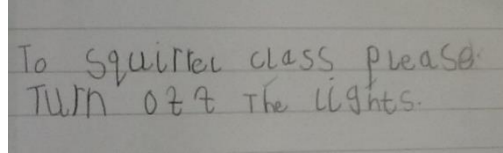 To Squirrel class please
Turn off The lights.